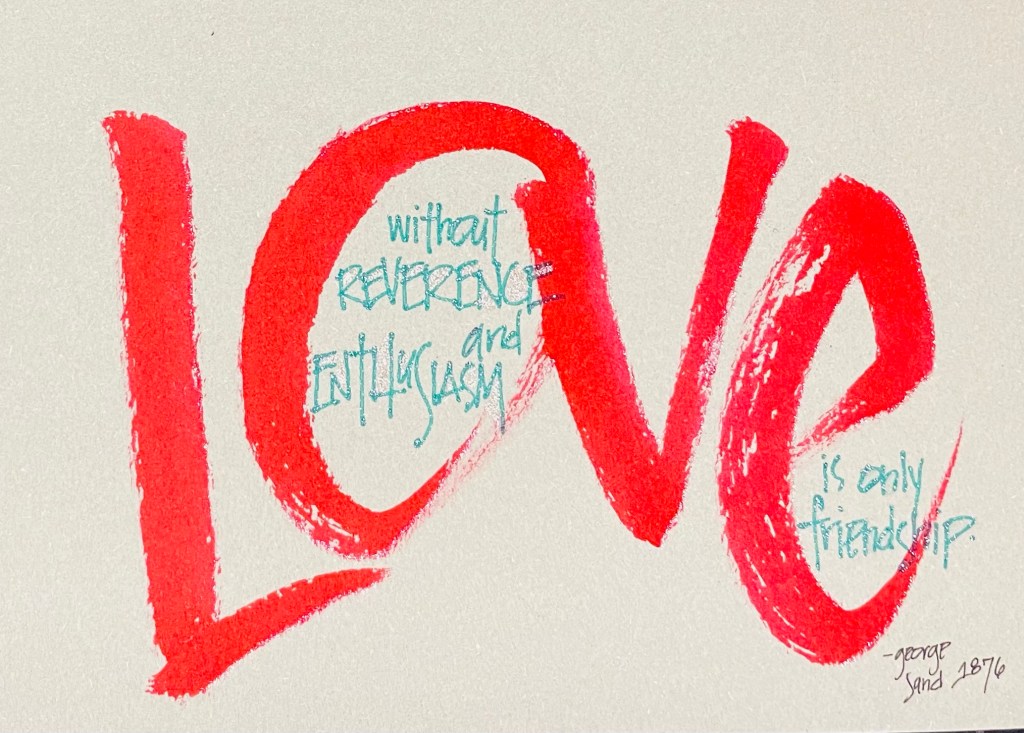 LOVe
without
REVERENCE
and
ENTHUSIASM
is only
friendship.
-george
sand 1876